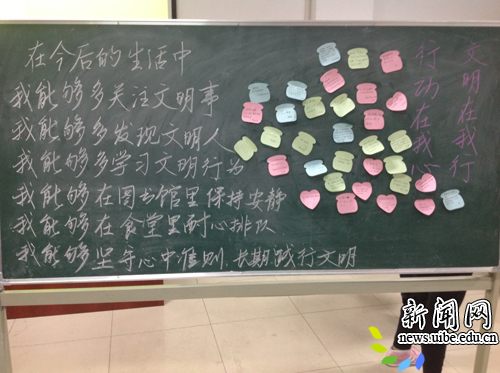 在今后的生活中
我能够多关注文明事
我能够多发现文明人
我能够多学习文明行为
我能够在图书馆里保持安静
我能够在食堂里耐心排队
我能够坚守心中准则,长期践行文明
文明在我行
行动在我心
新闻网
news.uibe.edu.cn